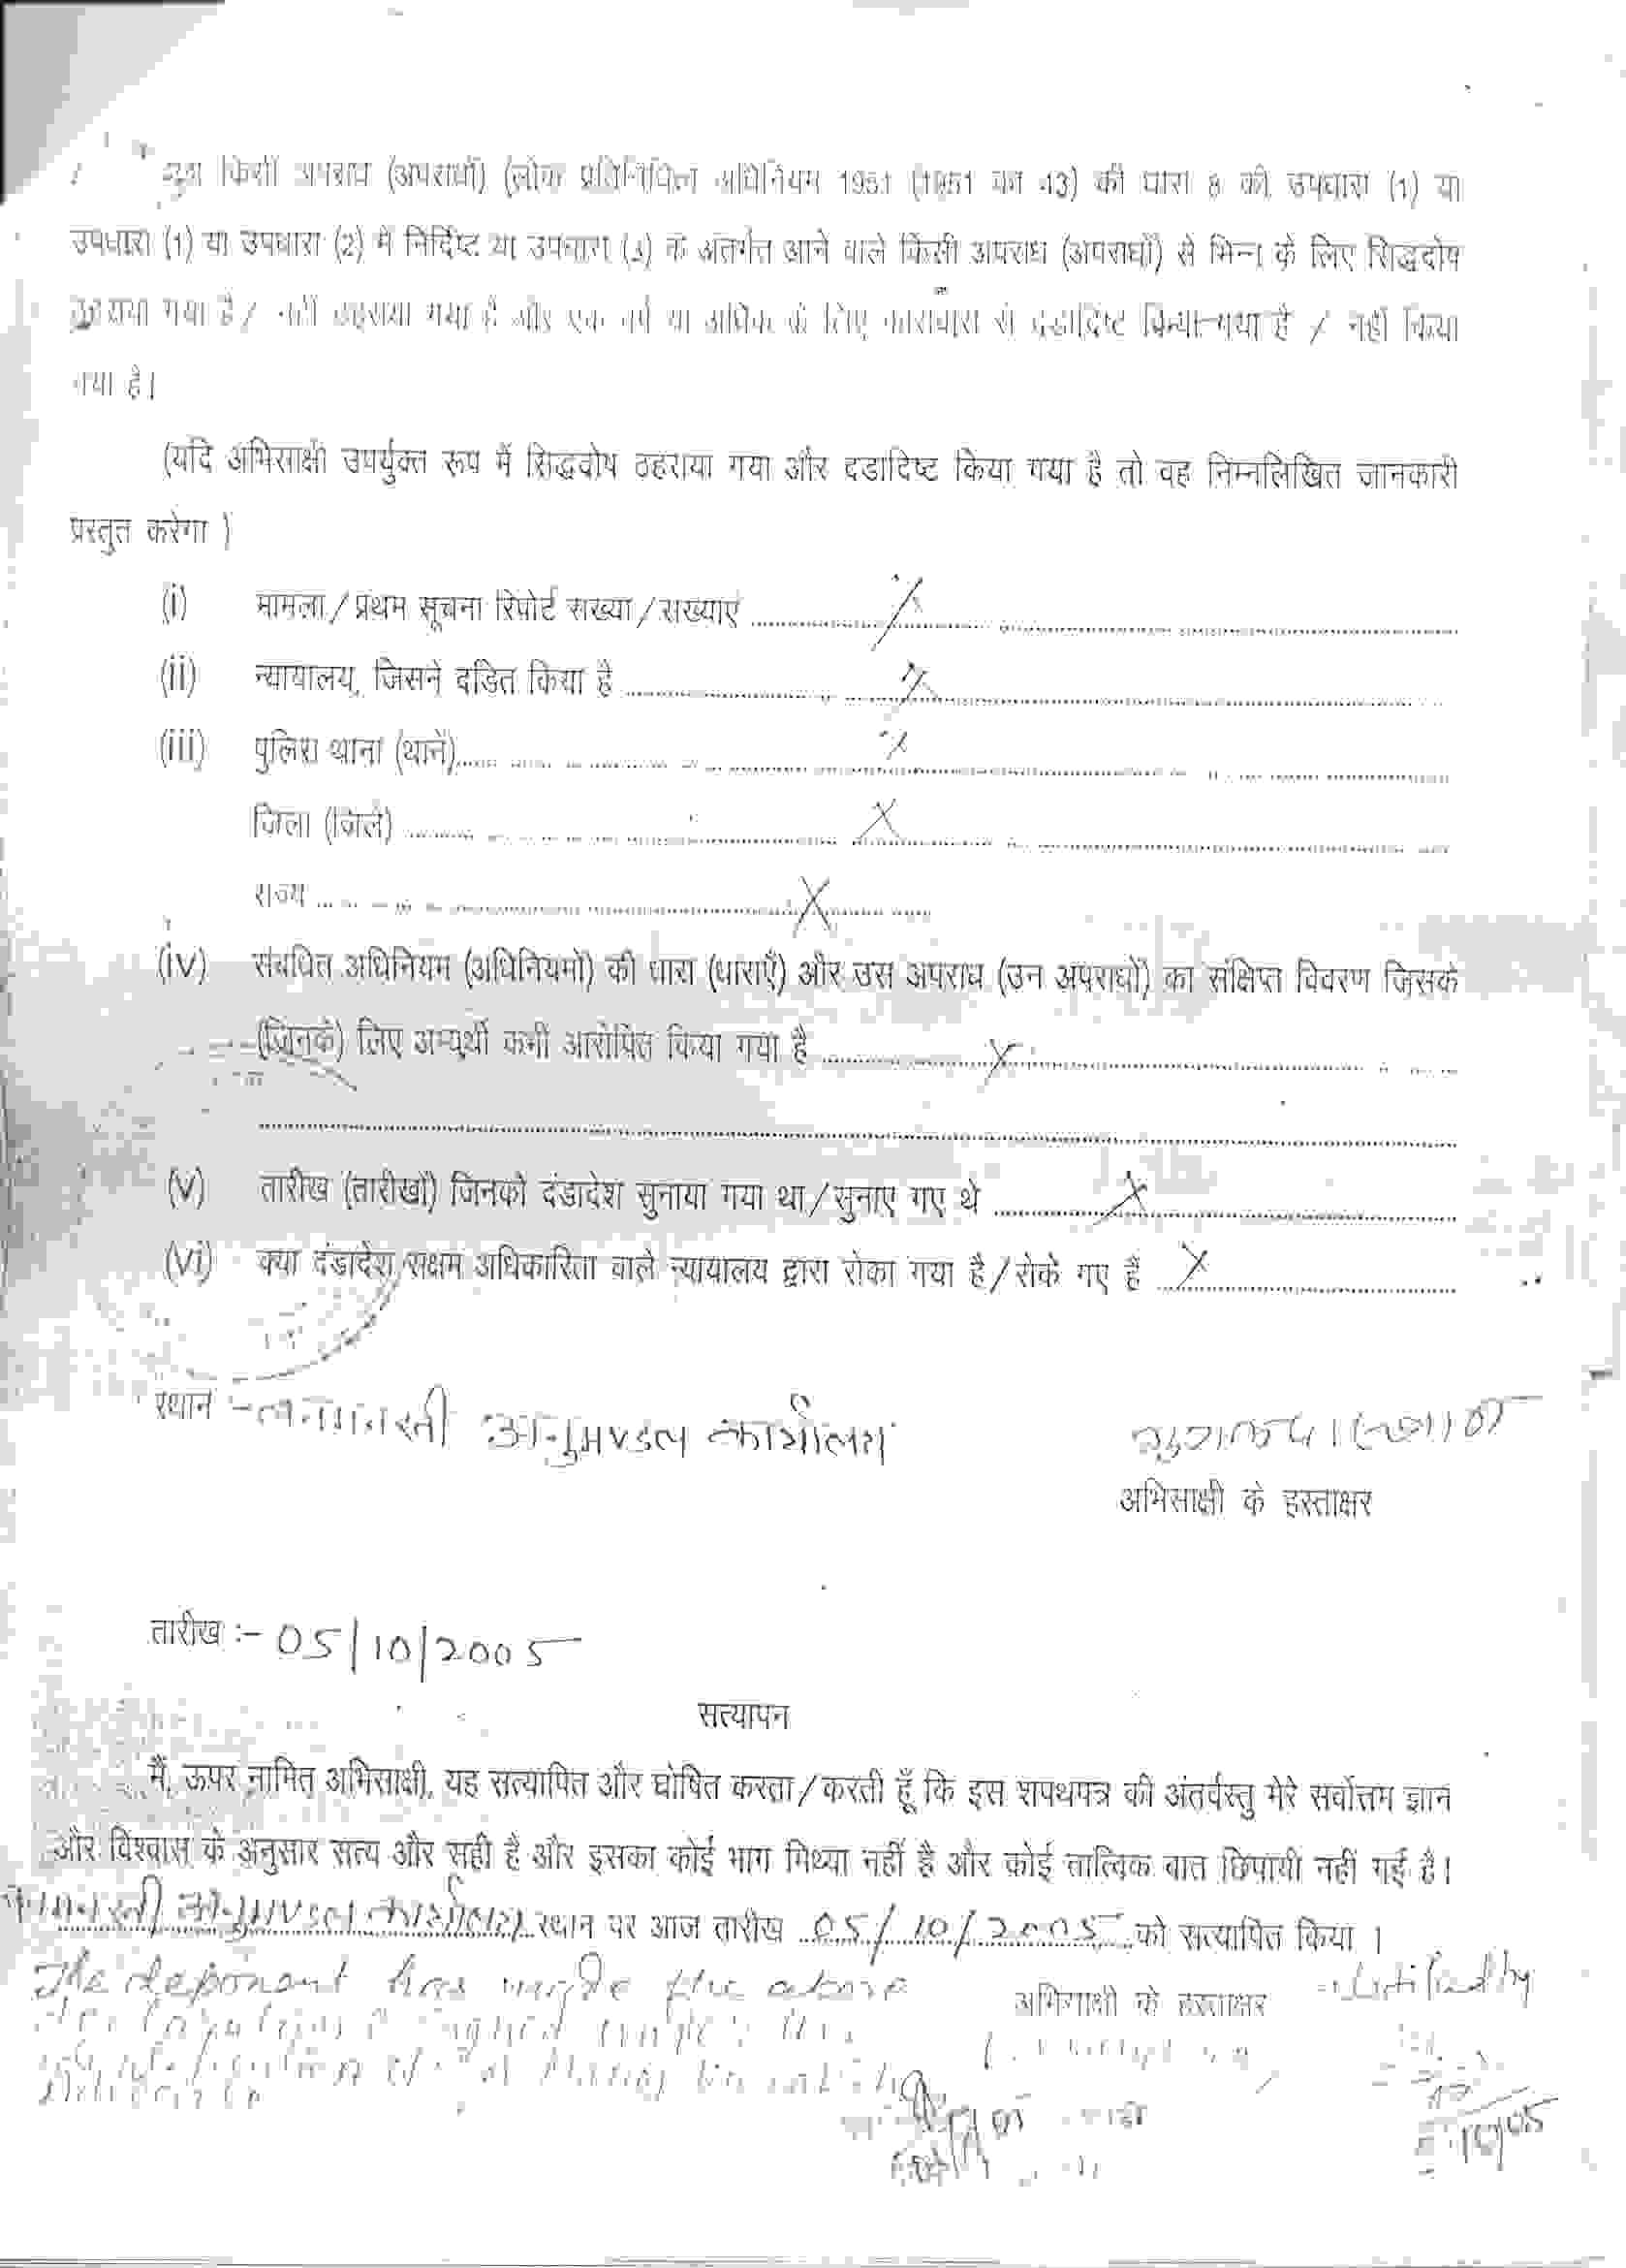 किसी अपराध (अपराधों) (लोक प्रतिनिधित्व अधिनियम 1951 (1951 का 43) की धारा 8 की उपधारा (1) या
उपधारा (1) या उपधारा (2) में निर्दिष्ट या उपधारा (3) के अंतर्गत आने वाले किसी अपराध (अपराधों) से भिन्न के लिए सिद्धदोष
ठहराया गया है / नहीं ठहराया गया है और एक वर्ष या अधिक के लिए कारावास से दंडादिष्ट किया गया है / नहीं किया
गया है।
(यदि अभिसाक्षी उपर्युक्त रूप में सिद्धदोष ठहराया गया और दंडादिष्ट किया गया है तो वह निम्नलिखित जानकारी
प्रस्तुत करेगा )
(i) मामला/प्रथम सूचना रिपोर्ट संख्या/संख्याएं ........ X ........
(ii) न्यायालय, जिसने दंडित किया है ........ X ........
(iii) पुलिस थाना (थाने) ........ X ........
जिला (जिले) ........ X ........
राज्य ........ X ........
(iv) संबंधित अधिनियम (अधिनियमों) की धारा (धाराएँ) और उस अपराध (उन अपराधों) का संक्षिप्त विवरण जिसके
(जिनके) लिए अभ्यर्थी कभी आरोपित किया गया है ........ X ........
(v) तारीख (तारीखों) जिनको दंडादेश सुनाया गया था/सुनाए गए थे ........ X ........
(vi) क्या दंडादेश सक्षम अधिकारिता वाले न्यायालय द्वारा रोका गया है/रोके गए हैं ........ X ........
स्थान :- अनुमण्डल कार्यालय
अभिसाक्षी के हस्ताक्षर
तारीख :- 05/10/2005
सत्यापन
मैं, ऊपर नामित अभिसाक्षी, यह सत्यापित और घोषित करता/करती हूँ कि इस शपथपत्र की अंतर्वस्तु मेरे सर्वोत्तम ज्ञान
और विश्वास के अनुसार सत्य और सही है और इसका कोई भाग मिथ्या नहीं है और कोई तात्विक बात छिपायी नहीं गई है।
अनुमण्डल कार्यालय स्थान पर आज तारीख 05/10/2005 को सत्यापित किया ।
The deponent has made the above
अभिसाक्षी के हस्ताक्षर